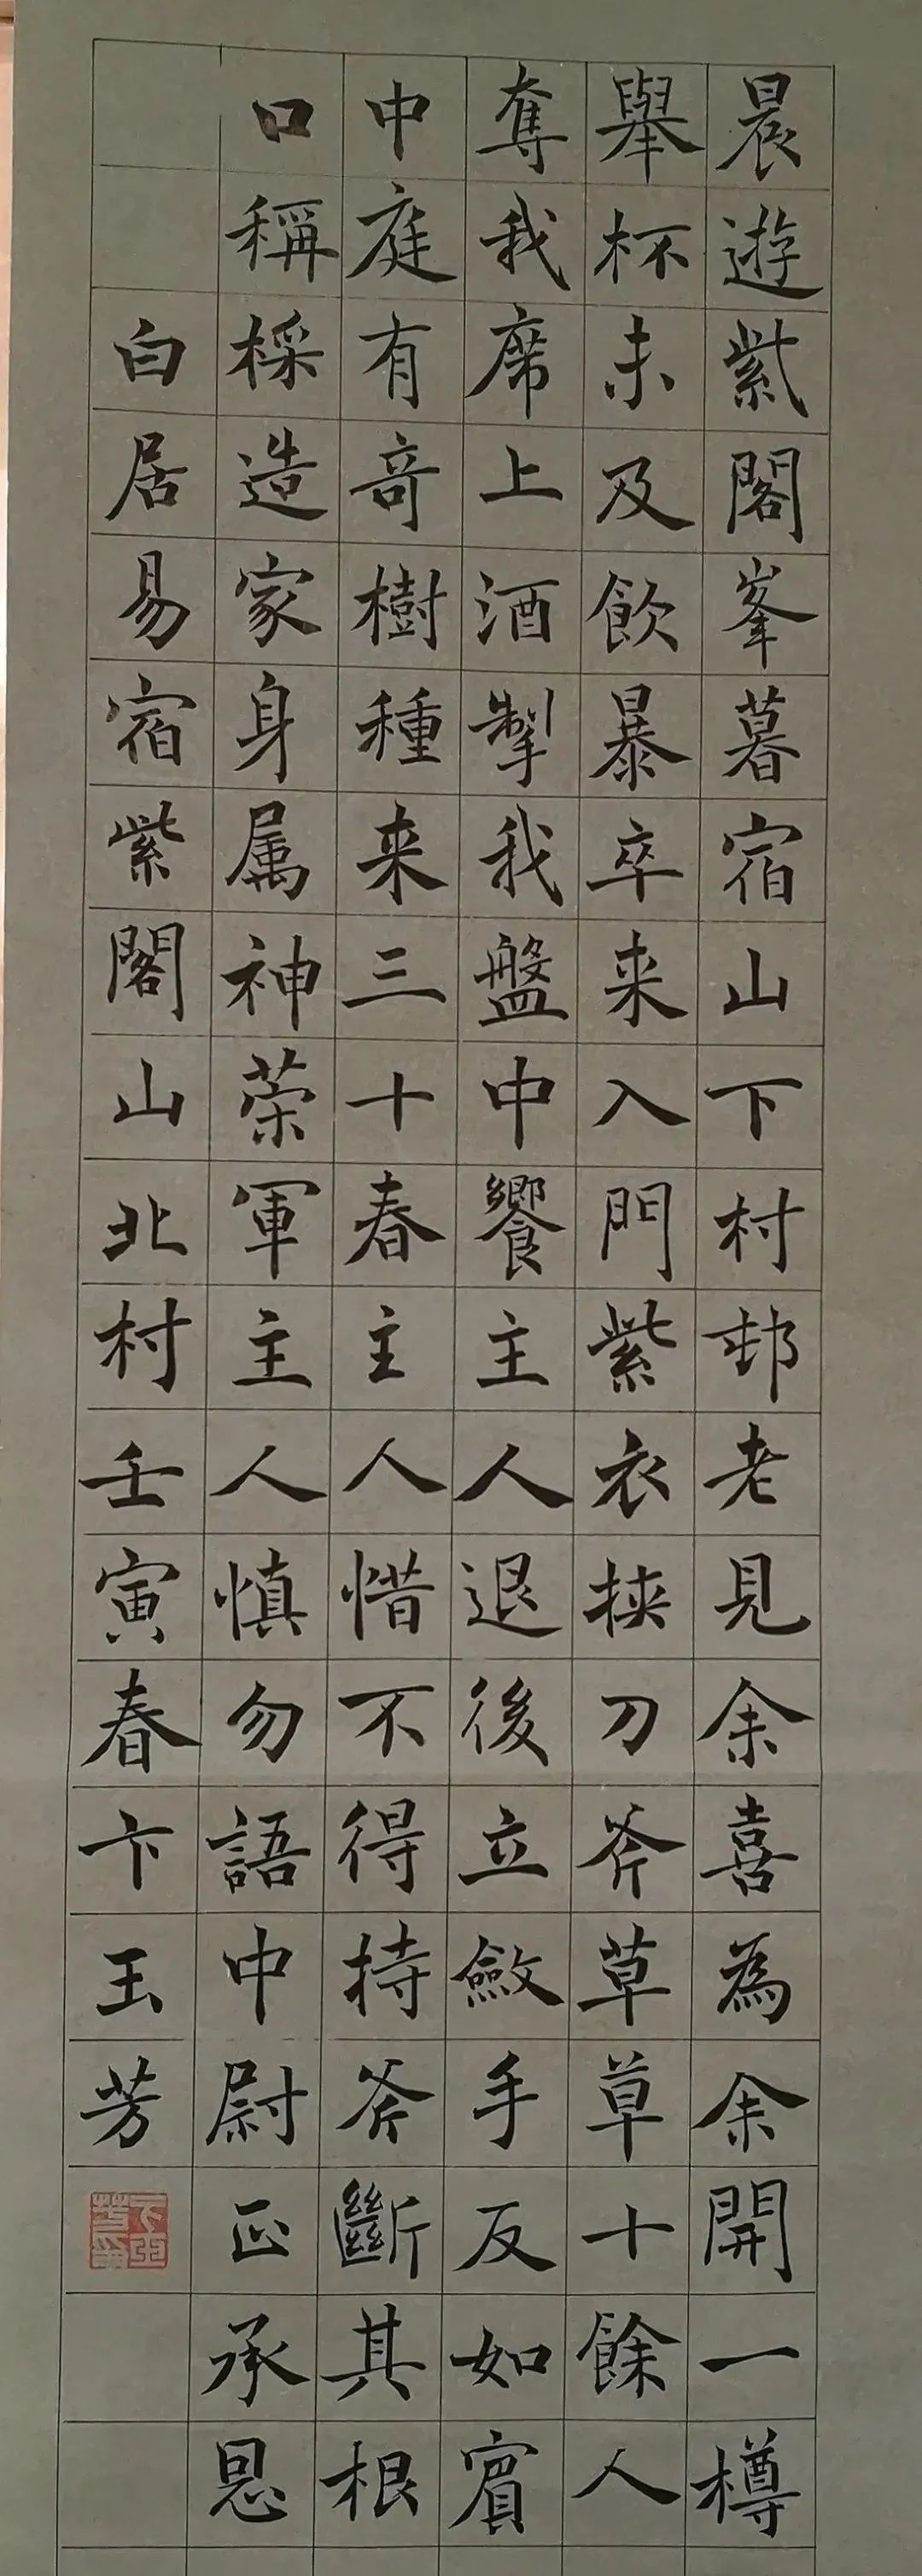 晨遊紫閣峯暮宿山下村邨老見余喜為余開一樽
舉杯未及飲暴卒来入門紫衣挾刀斧草草十餘人
奪我席上酒掣我盤中饗主人退後立斂手反如賓
中庭有奇樹種来三十春主人惜不得持斧斷其根
口稱採造家身属神荣軍主人慎勿語中尉正承恩
白居易宿紫閣山北村壬寅春卞玉芳